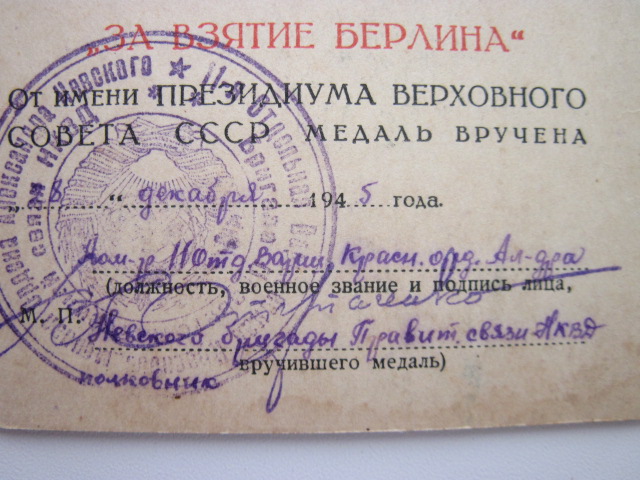 „ЗА ВЗЯТИЕ БЕРЛИНА“
От имени ПРЕЗИДИУМА ВЕРХОВНОГО
СОВЕТА СССР МЕДАЛЬ ВРУЧЕНА
„ 8 “ декабря 1945 года.
Ком-р 11 Отд Варш, Красн. орд. Ал-дра
(должность, военное звание и подпись лица,
М. П.
Невского бригады Правит связи НКВД
вручившего медаль)
полковник
11-я Отдельная
Невского
связи НКВД